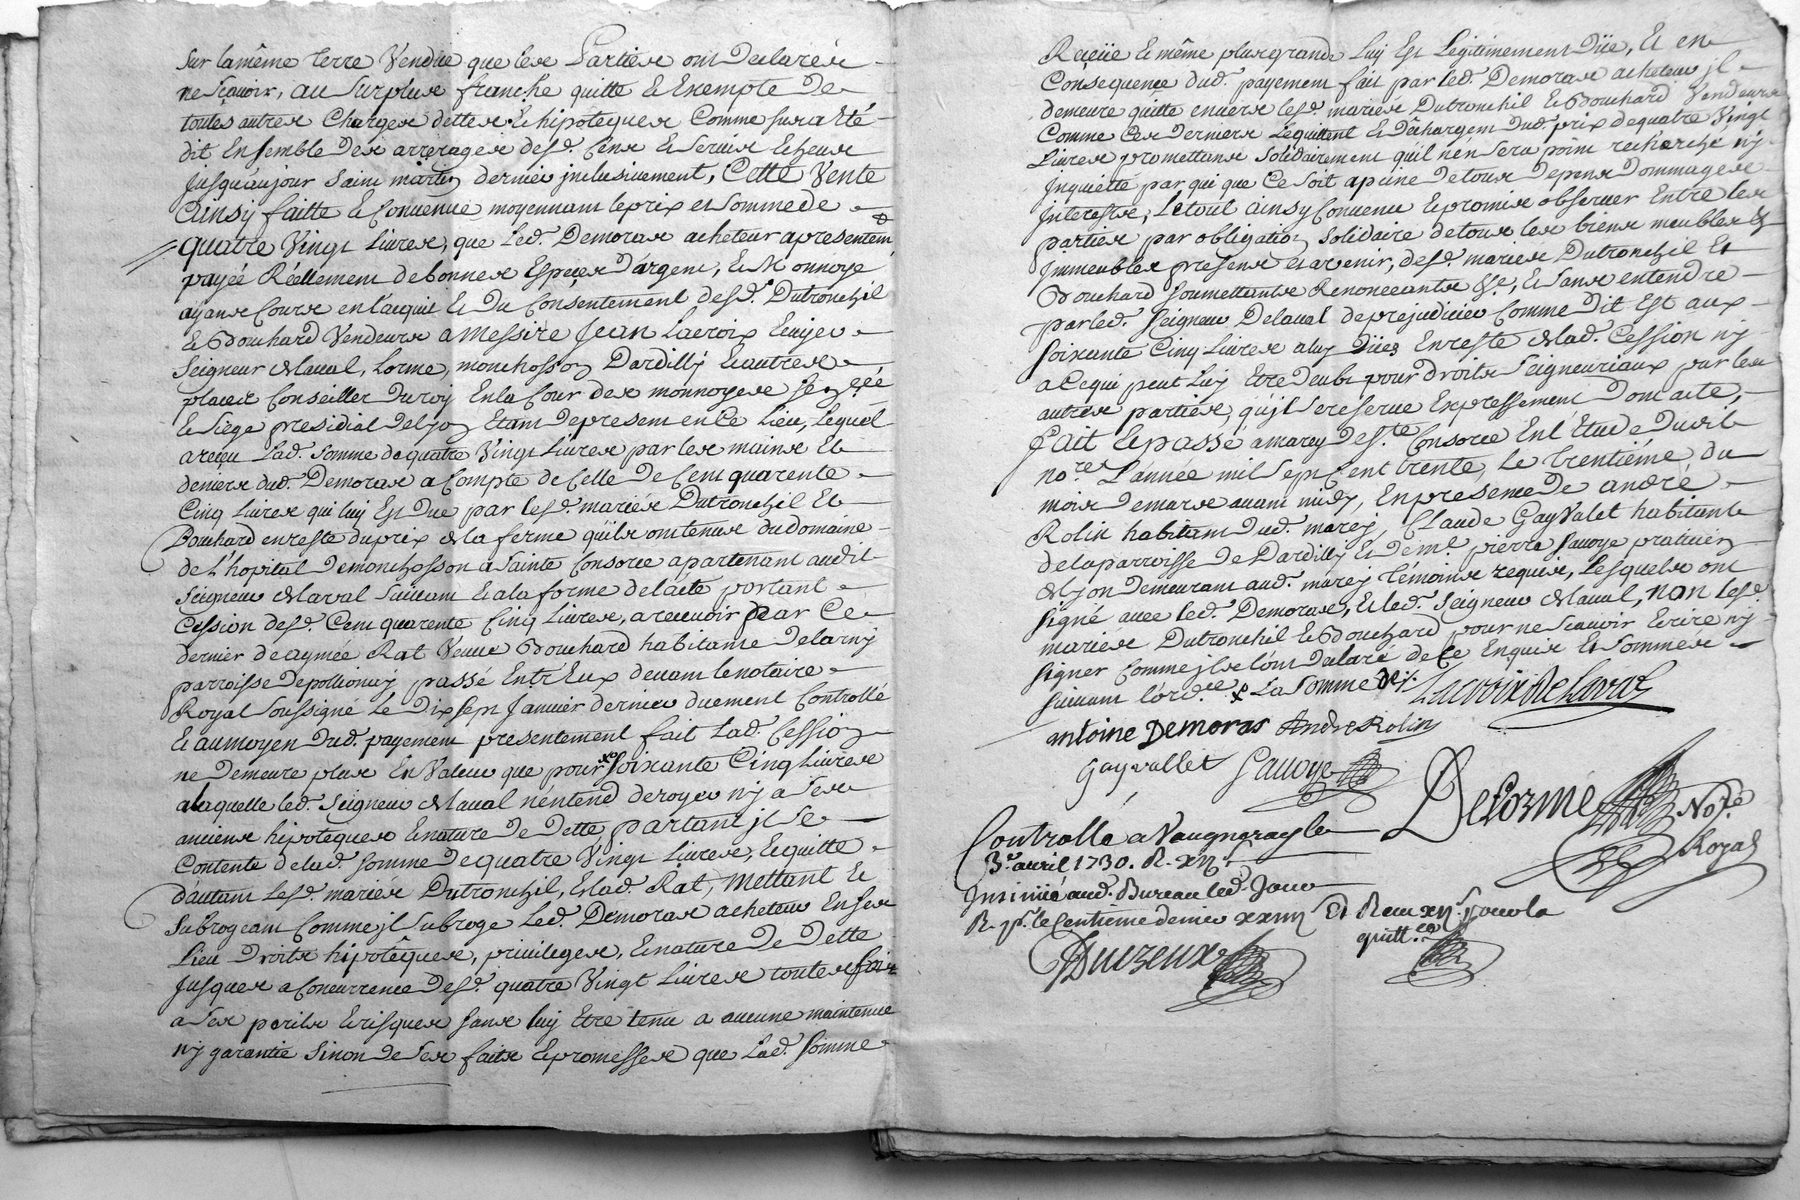 Sur la même terre Vendüe que les Parties ont declarés
ne sçavoir, au surplus franche quitte et Exempte de
toutes autres Charges dettes et hipoteques Comme sus a eté
dit Ensemble des arrerages desd. Cens et servis Echeus
Jusqu'au jour saint martin dernier jnclusivement, Cette Vente
Ainsy faitte et Convenüe moyennant le prix et somme de
quatre Vingt Livres, que Led. Demoras acheteur a presentem
payée Réellement de bonnes Espèces d'argent, et Monnoye
ayans Cours en l'acquit et du Consentement desd. Dutronchil
et Bouchard Vendeurs a Messire Jean Lacroix Ecuyer
Seigneur de Laval, Lorme, monchosson Dardilly et autres
places Conseiller du roy En la Cour des monnoyes sen.ceé
et siège presidial de Lyon Etant de present en Ce Lieu, Lequel
a reçeu Lad. somme de quatre Vingt Livres par les mains et
deniers dud. Demoras a Compte de Celle de Cent quarente
Cinq Livres qui luy Est due par lesd. mariés Dutronchil et
Bouchard en reste du prix de la ferme qu'ils ont tenus du domaine
de l'hopital de monchosson a Sainte Consorce apartenant audit
Seigneur de Laval Suivant et a la forme de l'acte portant
Cession desd. Cent quarente Cinq Livres, a recevoir par Ce
dernier de aymée Rat Veuve Bouchard habitante de Larny
parroisse de pollionay passé Entr'Eux devant le notaire
Royal soussigné Le Dix sept Janvier dernier duement Controllé
et au moyen dud. payement presentement fait Lad. Cession
ne demeure plus En Valeur que pour soixante Cinq Livres
a laquelle led. Seigneur de Laval n'entend deroger ny a ses
anciens hipoteques et nature de Dette, partant jl se
Contente de lad. somme de quatre Vingt Livres, Et quitte
d'autant Lesd. mariés Dutronchil, et lad. Rat, Mettant et
Subrogeant Comme jl subroge Led. Demoras acheteur En ses
Lieu Droits hipotêques, privileges, et nature de Dette
Jusques a Concurrence desd. quatre Vingt Livres toutes fois
a ses perils et risques sans luy Etre tenu a aucune maintenue
ny garantie sinon de ses faits et promesses que Lad. somme
Reçüe et même plus grande luy Est Legitimement Düe, Et en
Consequence dud. payement fait par led. Demoras acheteur jl
demeure quitte envers lesd. mariés Dutronchil et Bouchard Vendeurs
Comme Ces Derniers L'equittent et Dêchargent dud. prix de quatre Vingt
Livres promettans solidairement qu'il n'en sera point recherché ny
Inquietté par qui que Ce soit a peine de tous Depens Dommages
interests, Le tout ainsy Convenu et promis observer Entre les
parties par obligation solidaire de tous les biens meubles et
Immeubles presens et avenir, desd. mariés Dutronchil et
Bouchard soumettants Renonceants &c, et sans entendre
par led. seigneur Delaval de prejudicier Comme dit Est aux
soixante Cinq Livres a luy Dües En reste de lad. Cession ny
a Ce qui peut luy Etre Deub pour droits Seigneuriaux par les
autres parties, qu'jl se reserve Expressement Dont acte,
Fait et passé a marcy de S.te Consorce En l'Etude dudit
no.re L'année mil sept Cent trente, Le trentiéme du
mois de mars avant midy, En presence de andré
Rolin habitant dud. marcy, Claude Gayvalet habitant
de la parroisse de Dardilly et de m.e pierre Savoye praticien
de Lyon demeurant aud. marcy témoins requis, Lesquels ont
signé avec led. Demoras, et led. Seigneur de Laval, non Lesd.
mariés Dutronchil et Bouchard pour ne sçavoir Ecrire ny
signer Comme jls l'ont declaré de Ce Enquis et sommés
suivant l'ord.ce La somme de
Lacroix de Laval
antoine Demoras André Rolin
Gayvallet Savoye
Delorme No.re
Royal
Controllé a Vaugneray le
3.e avril 1730. R. xij s.
Insinüé aud. Bureau led. Jour